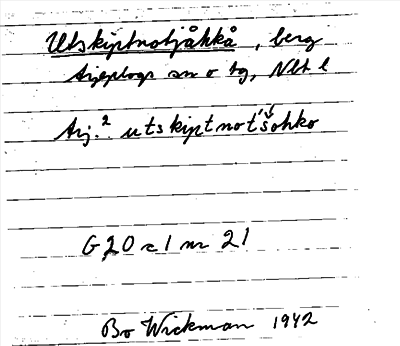 Utskiptnotjåkkå, berg
Arjeplogs sn o tg, Nbt l
Arj.² utskiptnot́šohko
G20 c1 nr 21
Bo Wickman 1942